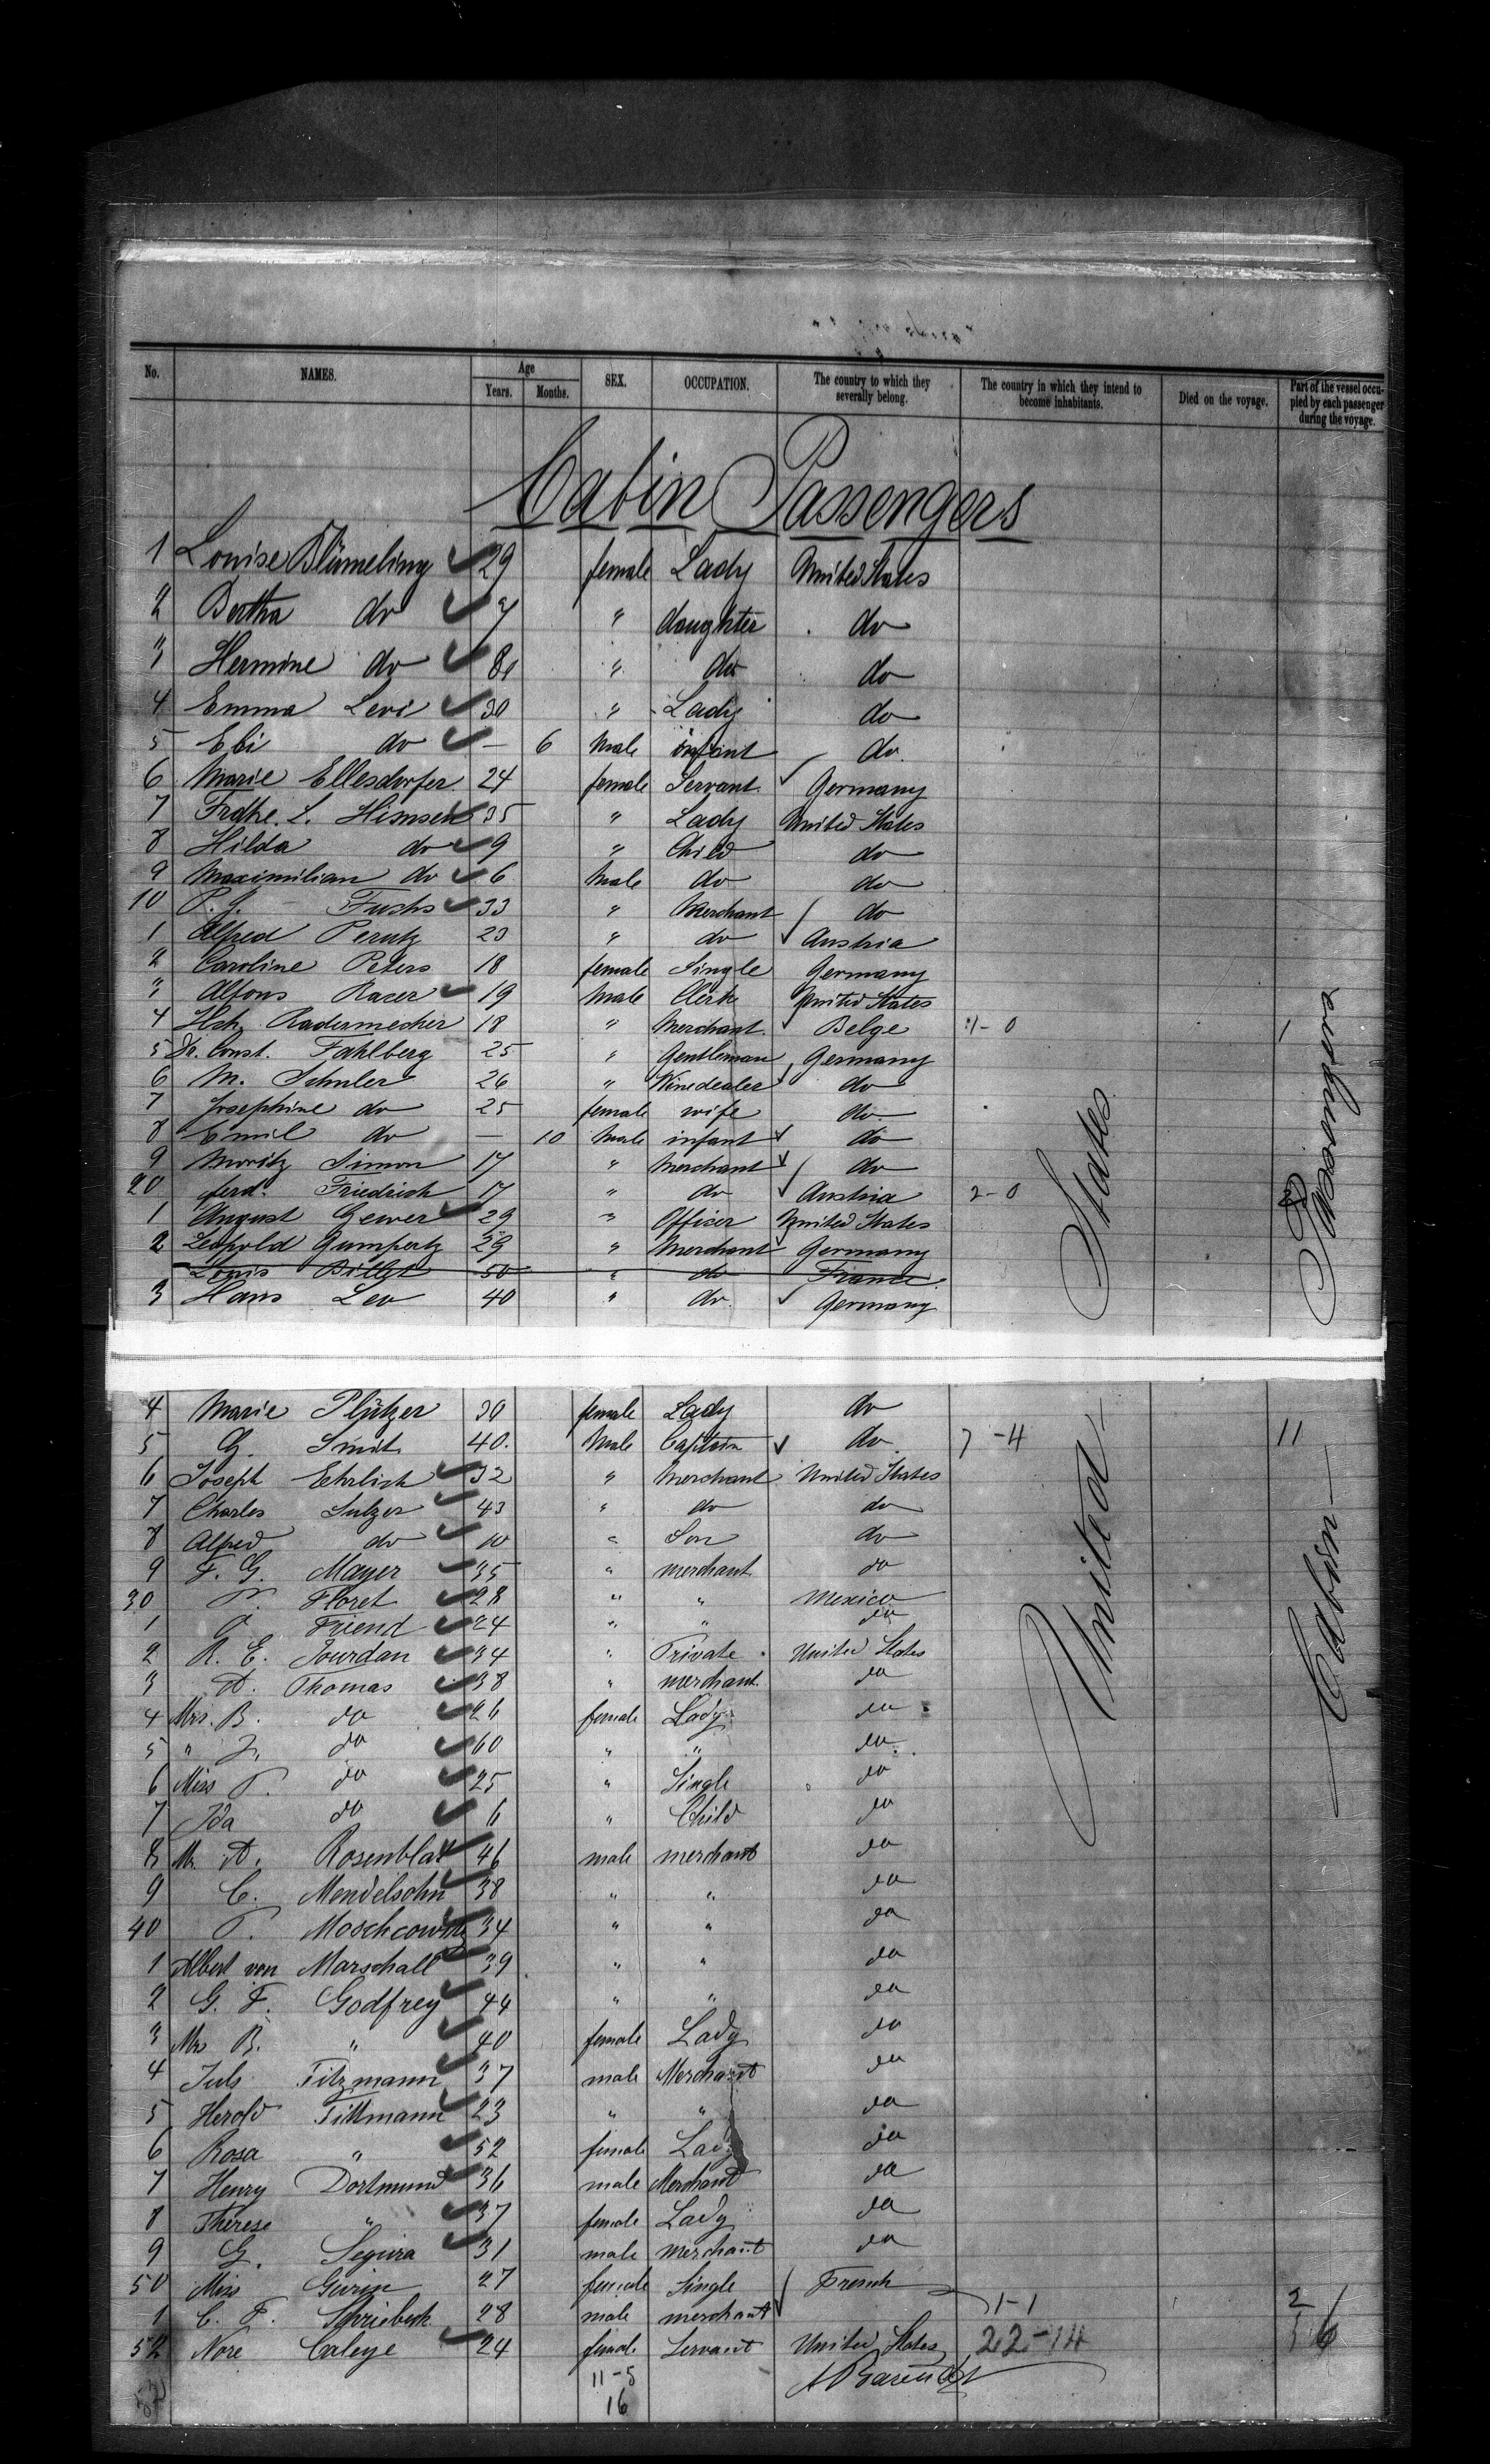 No. NAMES. Age Years. Months. SEX. OCCUPATION. The country to which they severally belong. The country in which they intend to become inhabitants. Died on the voyage. Part of the vessel occupied by each passenger during the voyage.
Cabin Passengers
1 Louise Blümeling 29 female Lady United States
2 Bertha do 7 " daughter do
3 Hermine do " do do
4 Emma Levi 30 " Lady do
5 Ebi do — 6 Male infant do
6 Marie Ellesdorfer 24 female Servant Germany
7 Frdke. L. 35 " Lady United States
8 Hilda do 9 " Child do
9 Maximilian do 6 Male do do
10 P. J. Fuchs 33 " Merchant do
1 Alfred Perutz 23 " do Austria
2 Caroline Peters 18 female Single Germany
3 Alfons Racer 19 Male Clerk United States
4 Hch. Radermecher 18 " Merchant Belge 1-0 1
5 Dr. Const. Fahlberg 25 " Gentleman Germany
6 M. Schuler 26 " Winedealer do
7 Josephine do 25 female wife do
8 Emil do — 10 Male infant do
9 Moritz Simon 17 " Merchant do
20 Ferd. Friedrich 17 " do Austria 2-0 2
1 August Gewer 29 " Officer United States
2 Leopold Gumpertz 29 " Merchant Germany
Louis Billet 50 " do France
3 Hans Leo 40 " do Germany
4 Marie Plützer 30 female Lady do
5 G. Smit 40. Male Captain do 7-4 11
6 Joseph Ehrlich 32 " Merchant United States
7 Charles Sulzer 43 " do do
8 Alfred do 10 " Son do
9 F. G. Mayer 35 " merchant do
30 Floret 28 " " Mexico
1 Friend 24 " " do
2 R. E. Jourdan 34 " Private United States
3 A. Thomas 38 " merchant do
4 Mrs. B. do 26 female Lady do
5 " J. do 60 " " do
6 Miss T. do 25 " Single do
7 Ida do 6 " Child do
8 Mr. A. Rosenblat 46 male merchant do
9 C. Mendelsohn 38 " " do
40 T. Moschcowitz 34 " " do
1 Albert von Marschall 39 " " do
2 G. F. Godfrey 44 " " do
3 Mrs B. " 40 female Lady do
4 Juls Titzmann 37 male Merchant do
5 Herold Tittmann 23 " " do
6 Rosa " 52 female Lady do
7 Henry Dortmund 36 male Merchant do
8 Therese " 37 female Lady do
9 G. Segura 31 male merchant do
50 Miss Gurin 27 female Single French
1 C. F. Schriebeck 28 male merchant 1-1 2
52 Nore Caleye 24 female Servant United States 22-14 16
11-5
16
United States
Cabin Passengers